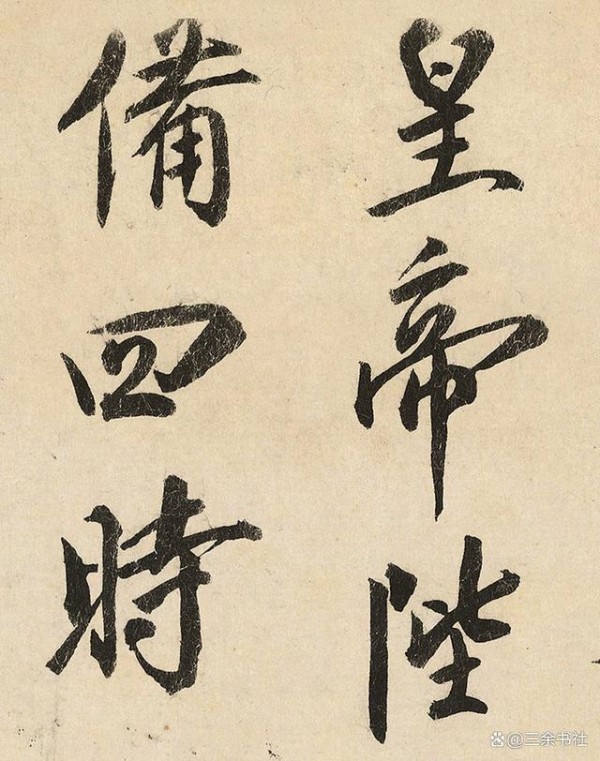 皇帝陛
備四時
@三余书社